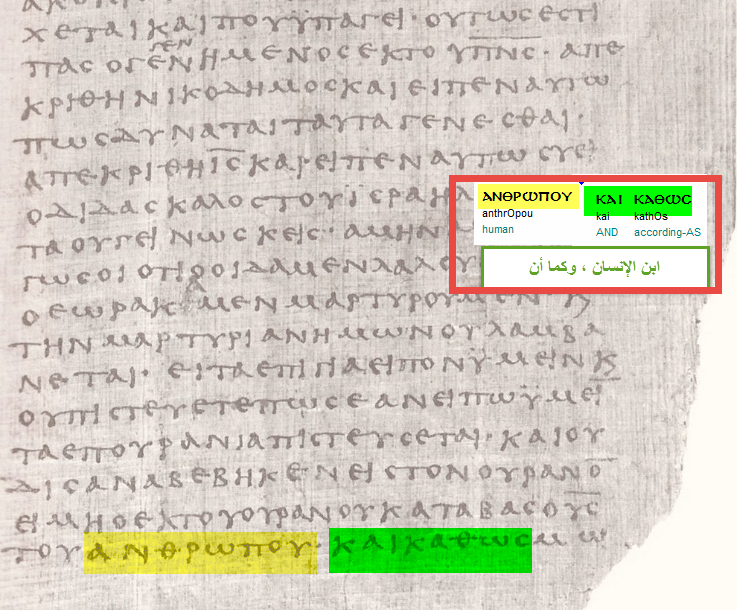 ΧΕΤΑΙΚΑΙΠΟΥΫΠΑΓΕΙ·ΟΥΤΩϹΕϹΤΙ
ΓΕΝ
ΠΑϹΟΓΕΝΗΜΕΝΟϹΕΚΤΟΥΠΝϹ·ΑΠΕ
ΚΡΙΘΗΝΙΚΟΔΗΜΟϹΚΑΙΕΙΠΕΝΑΥΤΩ
ΠΩϹΔΥΝΑΤΑΙΤΑΥΤΑΓΕΝΕϹΘΑΙ·
ΑΠΕΚΡΙΘΗΙϹΚΑΙ·ΕΙΠΕΝΑΥΤΩϹΥΕΙ
ΟΔΙΔΑϹΚΑΛΟϹΤΟΥΪϹΡΑΗΛ
ΤΑΟΥΓΕΙΝΩϹΚΕΙϹ·ΑΜΗΝ
ΓΩϹΟΙΟΤΙΟΟΙΔΑΜΕΝΛΑΛΟΥ
ΟΕΩΡΑΚΑΜΕΝΜΑΡΤΥΡΟΥΜΕΝ
ΤΗΝΜΑΡΤΥΡΙΑΝΗΜΩΝΟΥΛΑΜΒΑ
ΝΕΤΑΙ·ΕΙΤΑΕΠΙΓΙΑΕΙΠΟΝΫΜΕΙΝΚ
ΟΥΠΙϹΤΕΥΕΤΕΠΩϹΕΑΝΕΙΠΩΫΜΕΙ
ΤΑΕΠΟΥΡΑΝΙΑΠΙϹΤΕΥϹΕΤΑΙ·ΚΑΙΟΥ
ΔΙϹΑΝΑΒΕΒΗΚΕΝΕΙϹΤΟΝΟΥΡΑΝΟ
ΕΙΜΗΟΕΚΤΟΥΟΥΡΑΝΟΥΚΑΤΑΒΑϹΟΥϹ
ΤΟΥΑΝΘΡΩΠΟΥ·ΚΑΙΚΑΘΩϹΜΩ
ΑΝΘΡΩΠΟΥ ΚΑΙ ΚΑΘΩϹ
anthrOpou kai kathOs
human AND according-AS
ابن الإنسان ، وكما أن